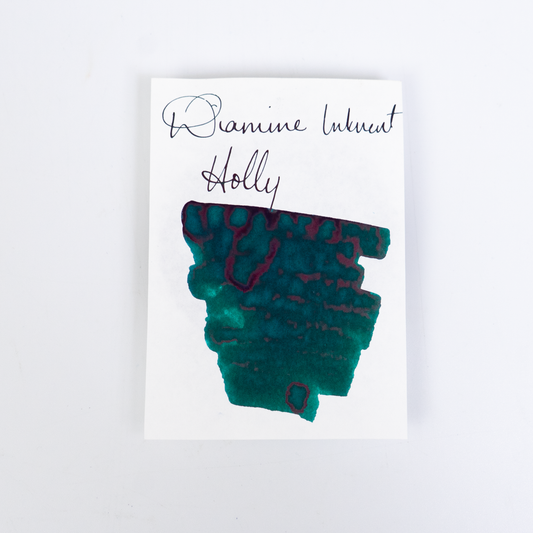 Diamine Inkvent
Holly